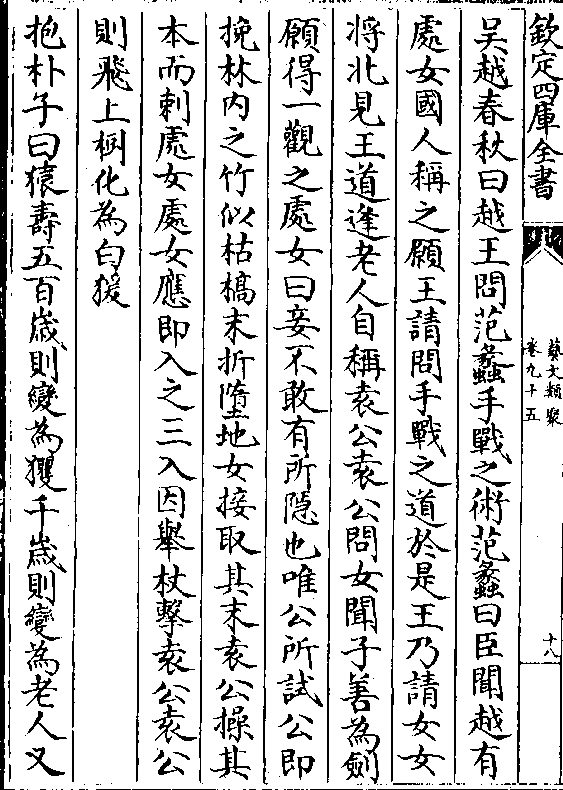 欽定四庫全書
藝文類聚
卷九十五
十八
吴越春秋曰越王問范蠡手戰之術范蠡曰臣聞越有
處女國人稱之願王請問手戰之道於是王乃請女女
將北見王道逢老人自稱袁公袁公問女聞子善為劍
願得一觀之處女曰妾不敢有所隠也唯公所試公即
挽林内之竹似枯槁末折墮地女接取其末袁公操其
本而刺處女處女應即入之三入因舉杖擊袁公袁公
則飛上樹化為白猨
抱朴子曰猿壽五百歳則變為玃千歳則變為老人又